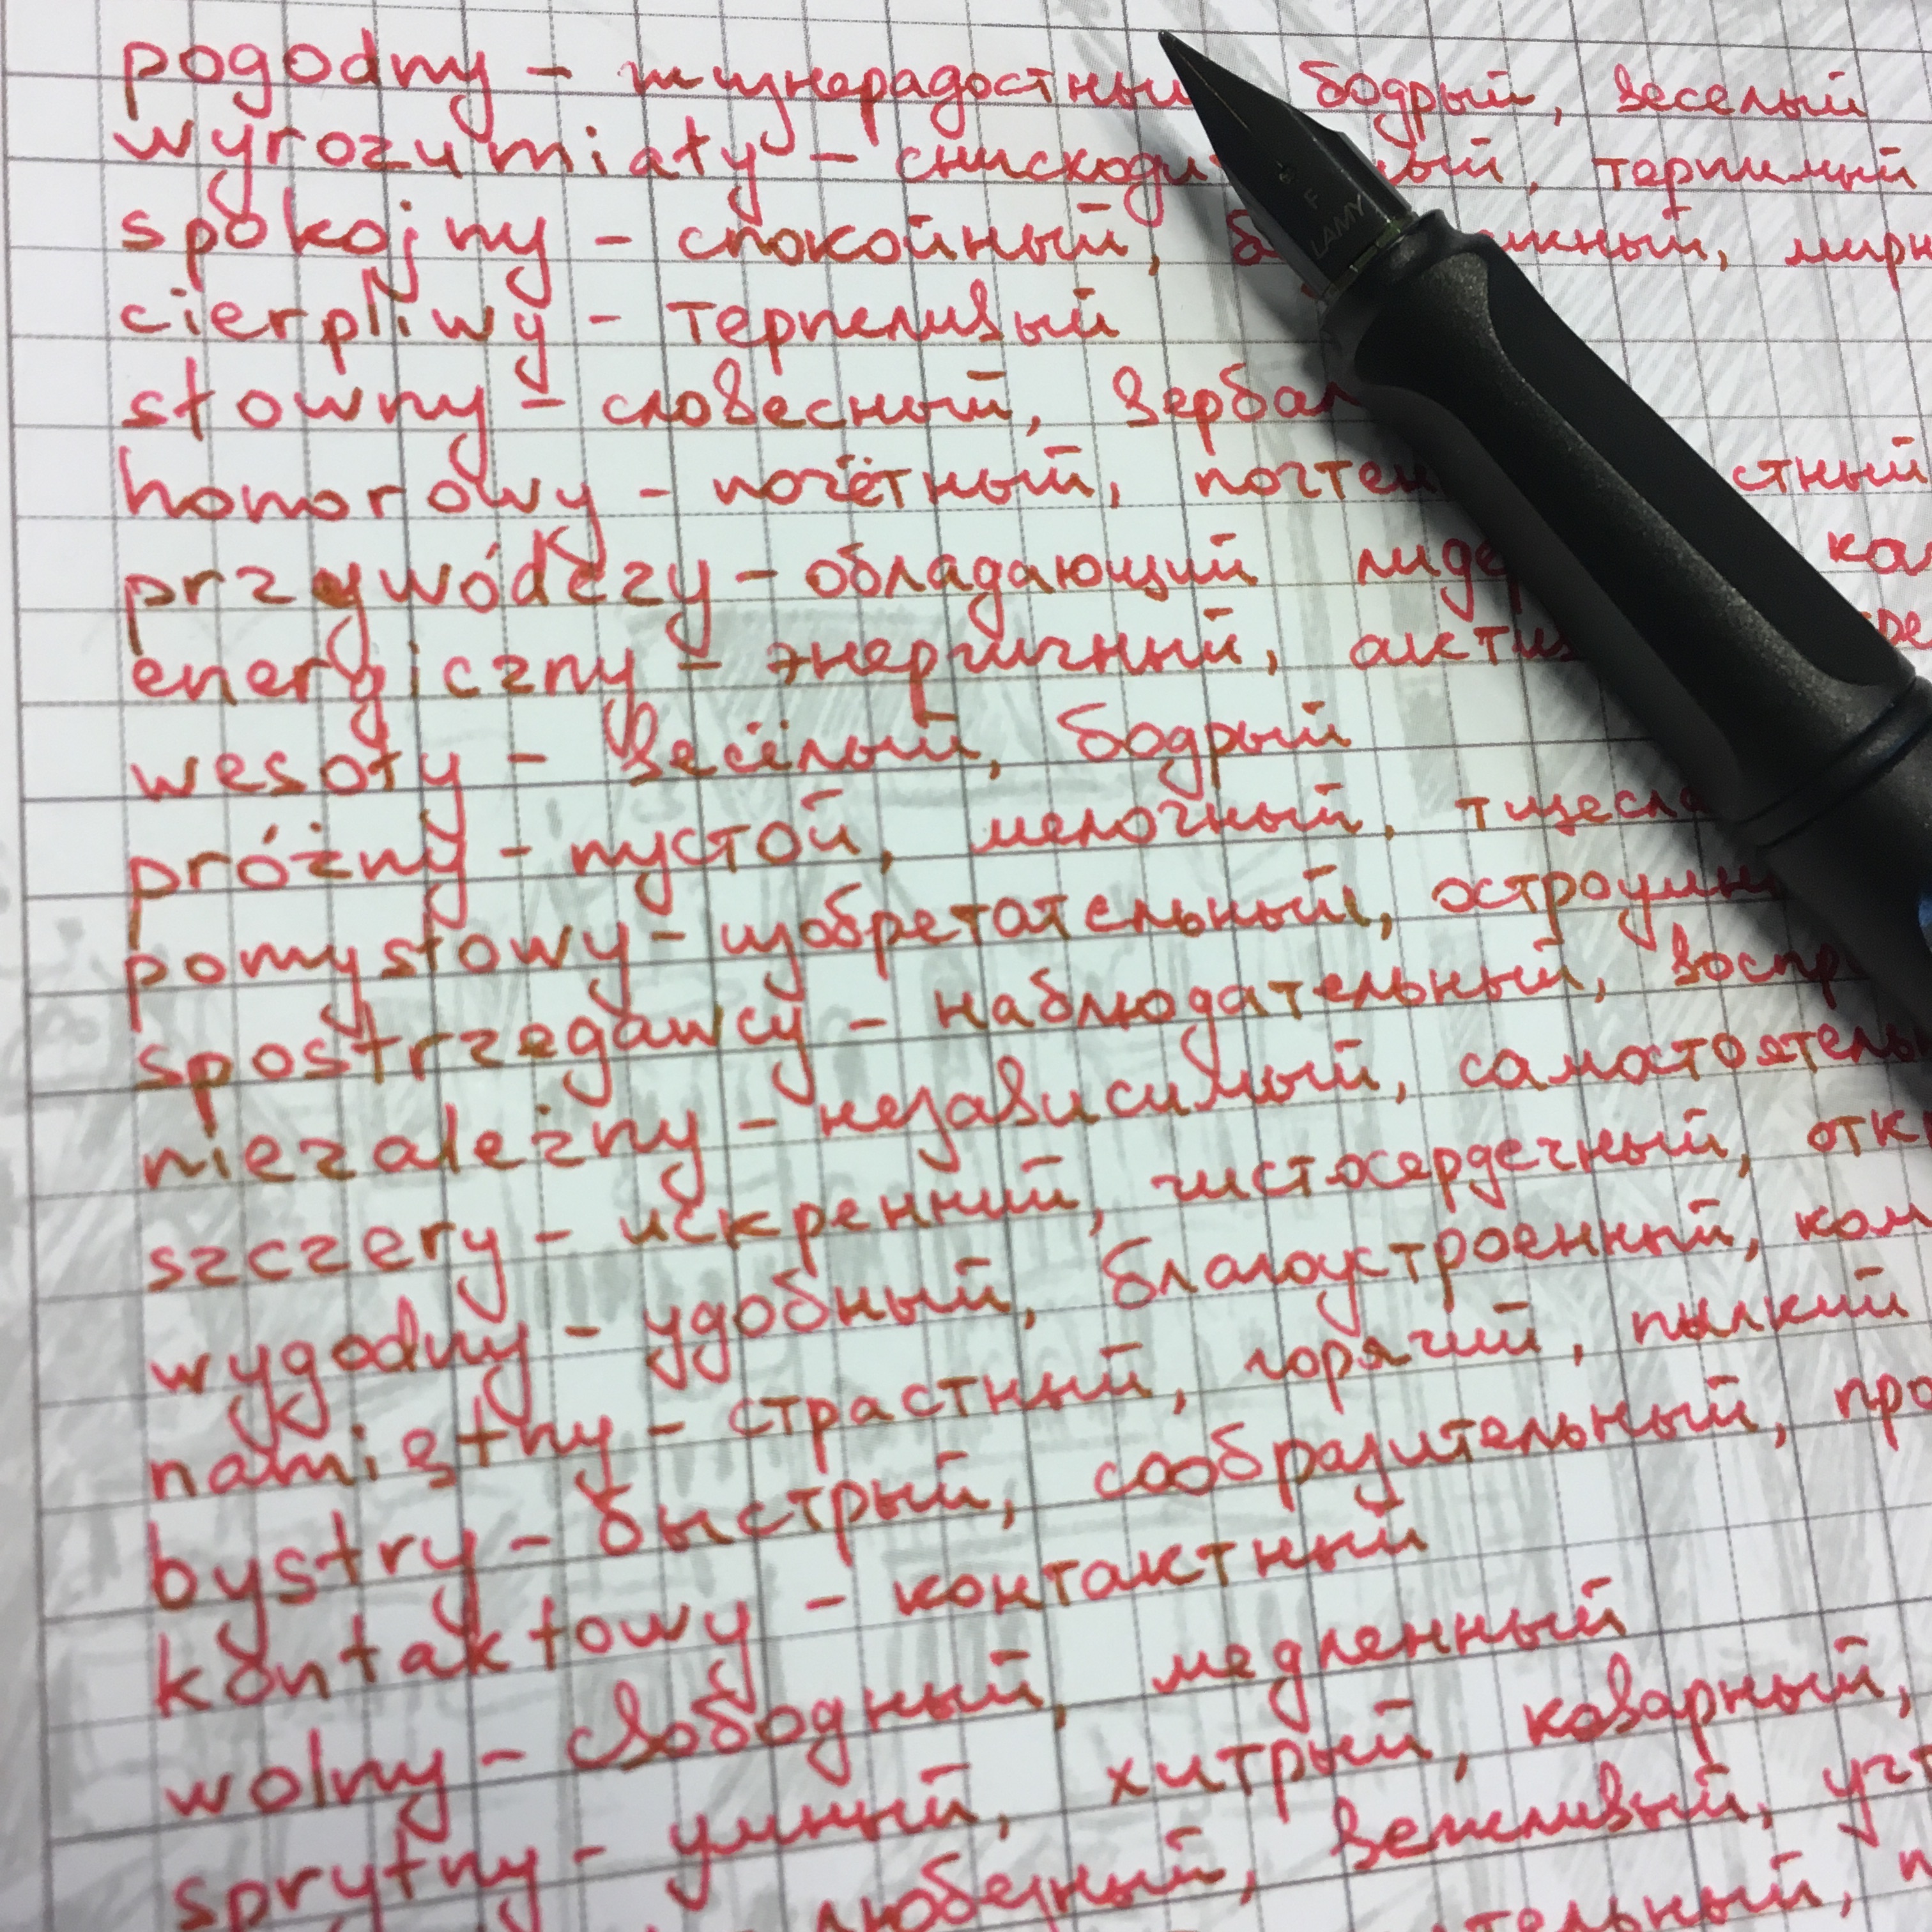 pogodny - жизнерадостный бодрый, веселый
wyrozumiały - терпимый
spokojny - спокойный,
cierpliwy - терпеливый
słowny - словесный,
honorowy - почётный,
przywódczy - обладающий
energiczny - энергичный,
wesoły - весёлый, бодрый
próżny - пустой, мелочный,
pomysłowy - изобретательный,
spostrzegawcy - наблюдательный,
niezależny - независимый,
szczery - искренний, чистосердечный,
wygodny - удобный, благоустроенный,
namiętny - страстный, горячий, пылкий
bystry - быстрый, сообразительный,
kontaktowy - контактный
wolny - свободный, медленный
sprytny - умный, хитрый, коварный,
любезный, вежливый,
F
LAMY